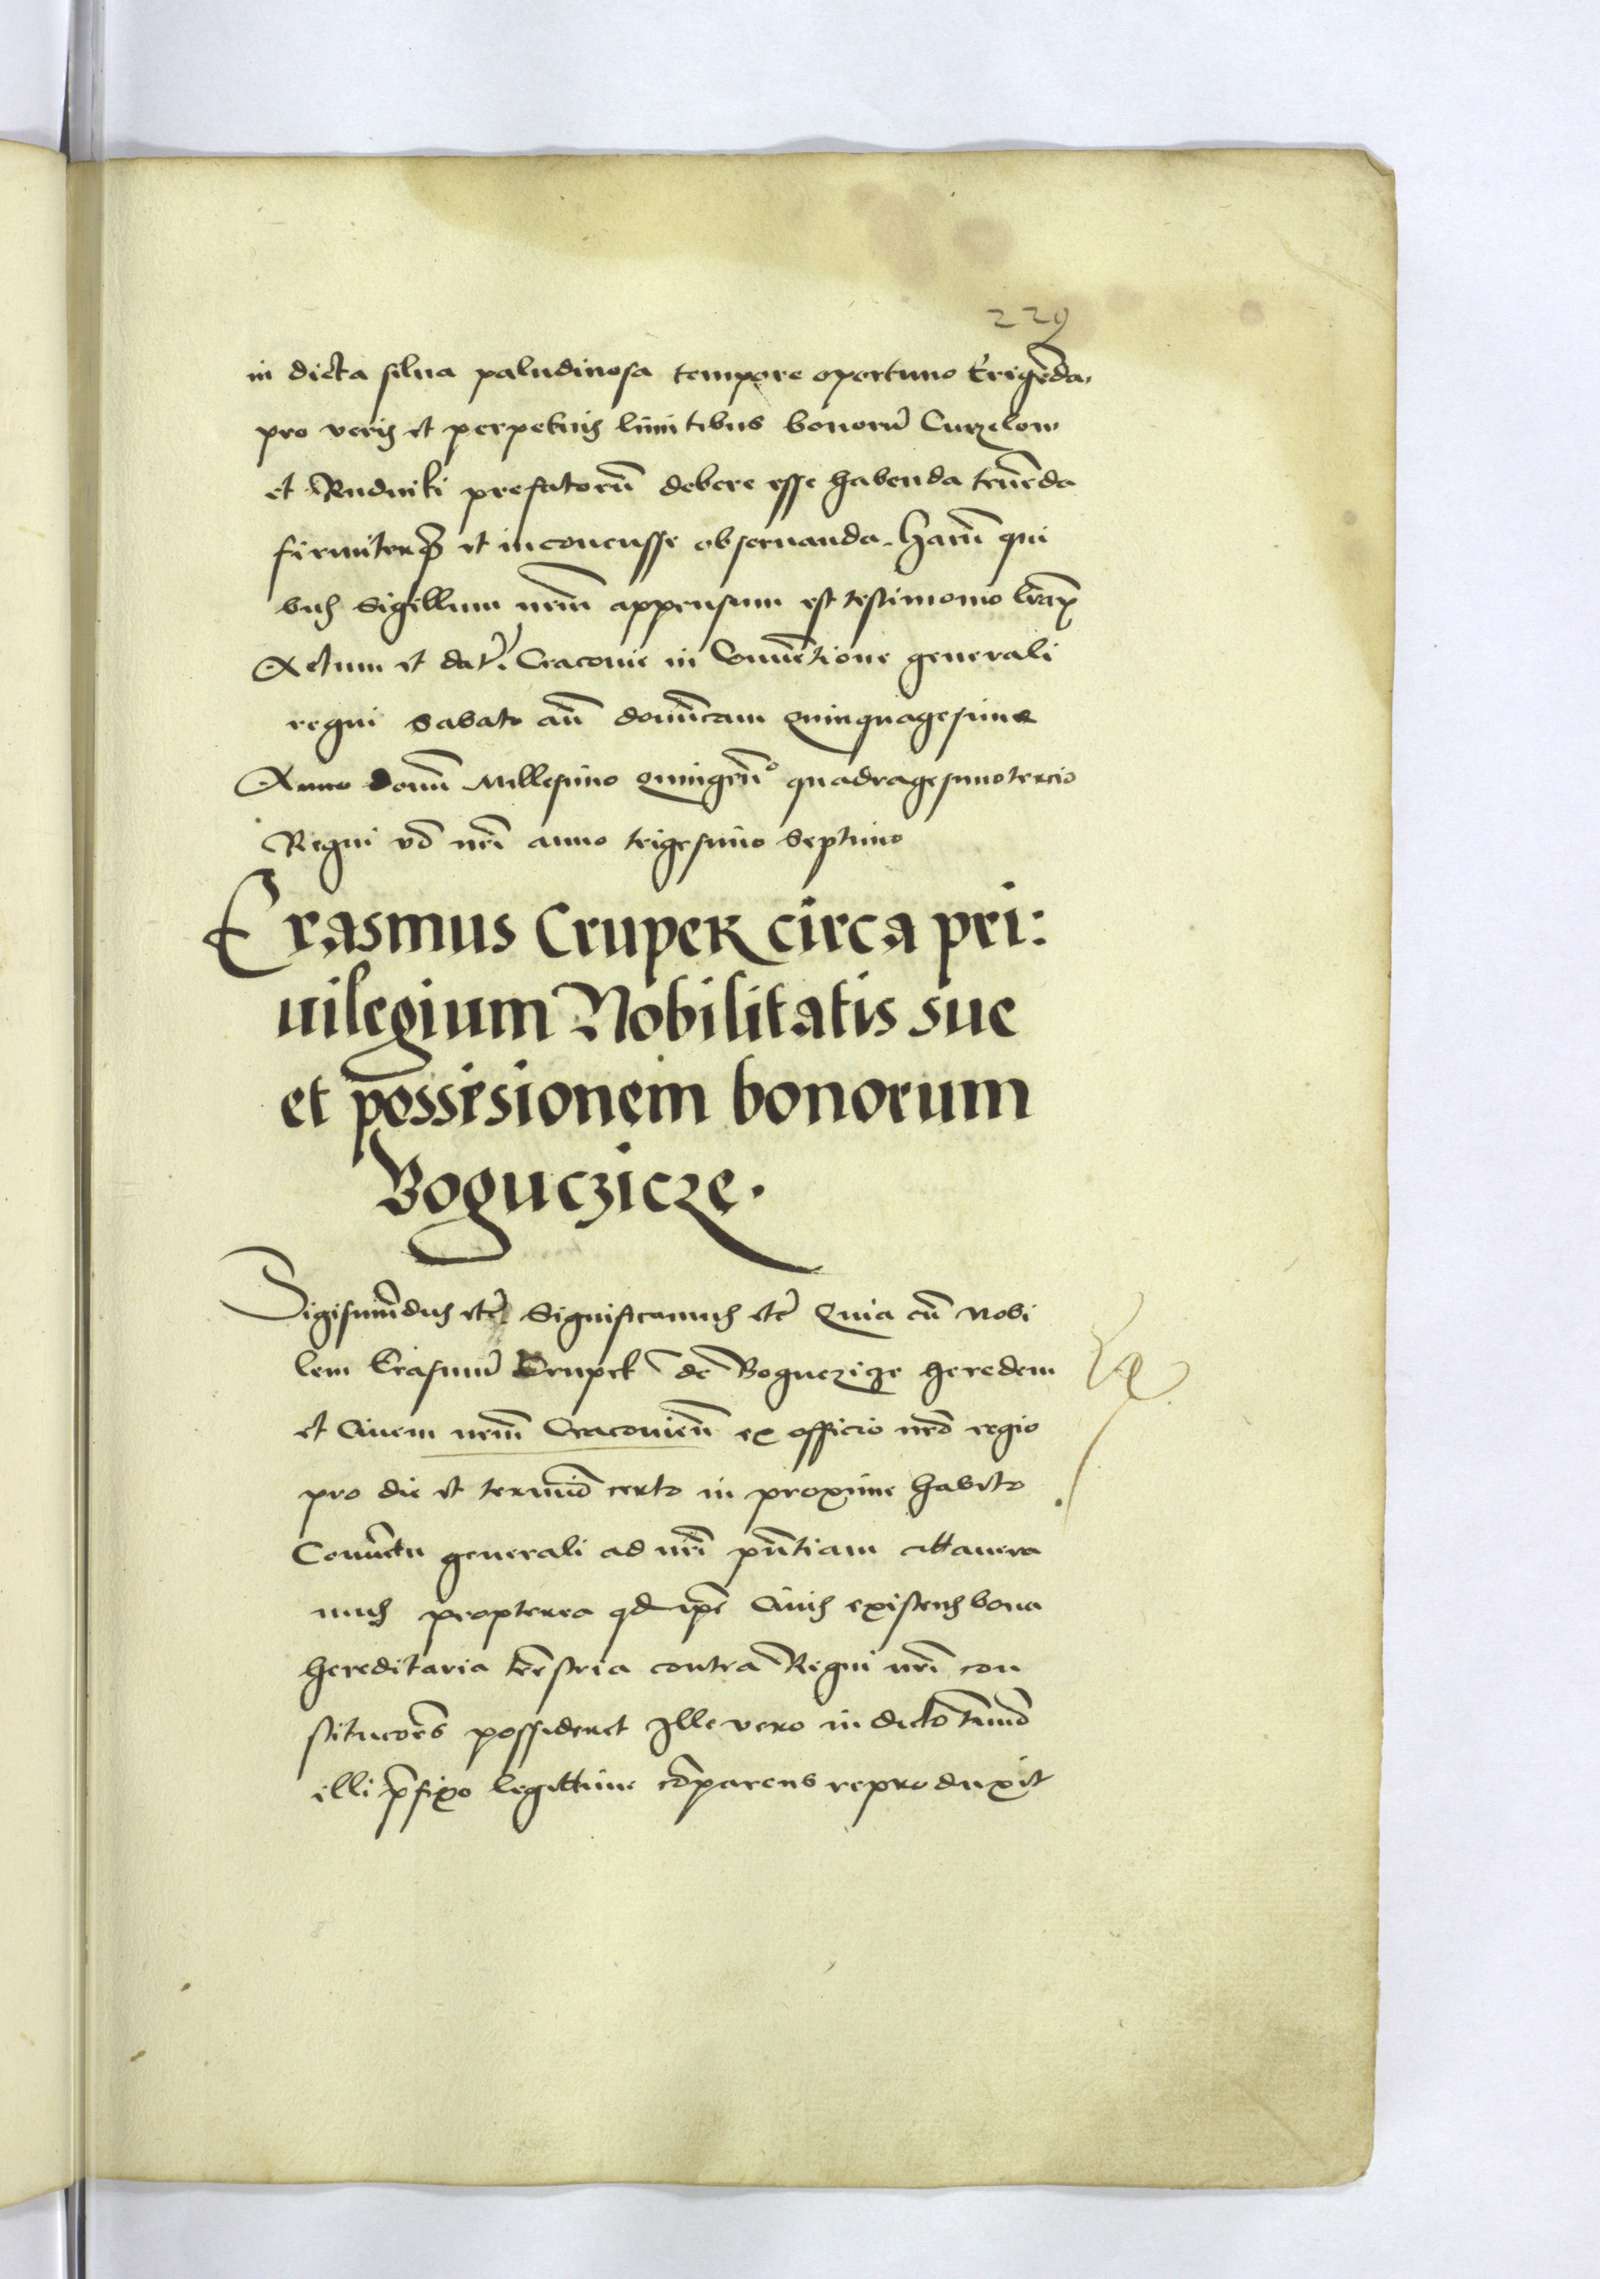 229
in dicta silua paludinosa tempore oportuno Erigēda,
pro veris et perpetuis limitibus bonorū Curzelow
et Rudniki prefatorū debere esse habenda tenēda
firmiterq̄ et inconcusse obseruanda. Harū qui
bus Sigillum nr̄m appensum est testimonio lr̄aꝝ
Actum et dat̄. Cracouie in Conuētione generali
regni Sabato an̄ domīcam Quinquagesime
Anno domī Millesimo Quingēn° quadragesimotercio
Regni v̄o nr̄i anno trigesimo Septimo
Erasmus Crupek circa pri:
uilegium Nobilitatis sue
et possesionem bonorum
Boguczicze.
Sigismūdus etc̄ Significamus etc̄ Quia cū Nobi
lem Erasmū Crupek de Boguczicze heredem
et Ciuem nr̄m Cracouieñ ex officio nr̄o regio
pro die et termīo certo in proxime habito
Conuētu generali ad nr̄i pn̄tiam cittauera
mus propterea qd̄ ip̄e Ciuis existens bona
hereditaria terr̄stria contra Regni nr̄i con
stitucōes possideret Ille vero in dicto tīmo
illi p̄fixo legittime cōparens reproduxit